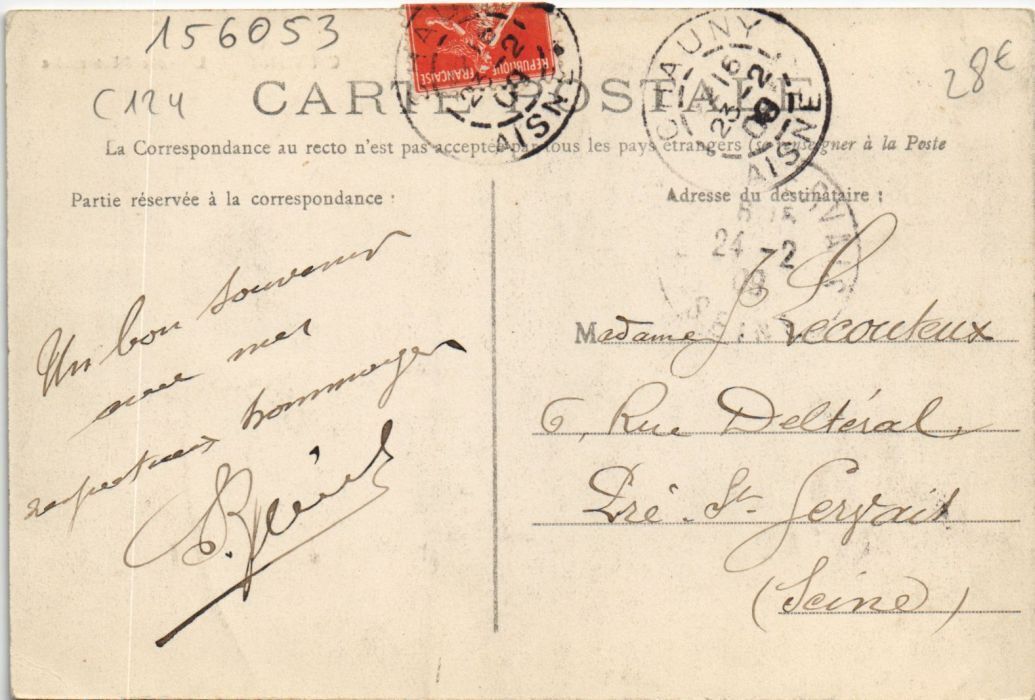 156053
C124
28€
RÉPUBLIQUE FRANÇAISE
CARTE POSTALE
CHAUNY
23 -2
09
AISNE
La Correspondance au recto n'est pas acceptée par tous les pays étrangers (se renseigner à la Poste
Partie réservée à la correspondance :
Un bon souvenir
avec mes
respectueux hommages
Adresse du destinataire :
24 -2
09
Madame Lecouteux
6, Rue Deltéral,
Pré-St-Gervais
(Seine)